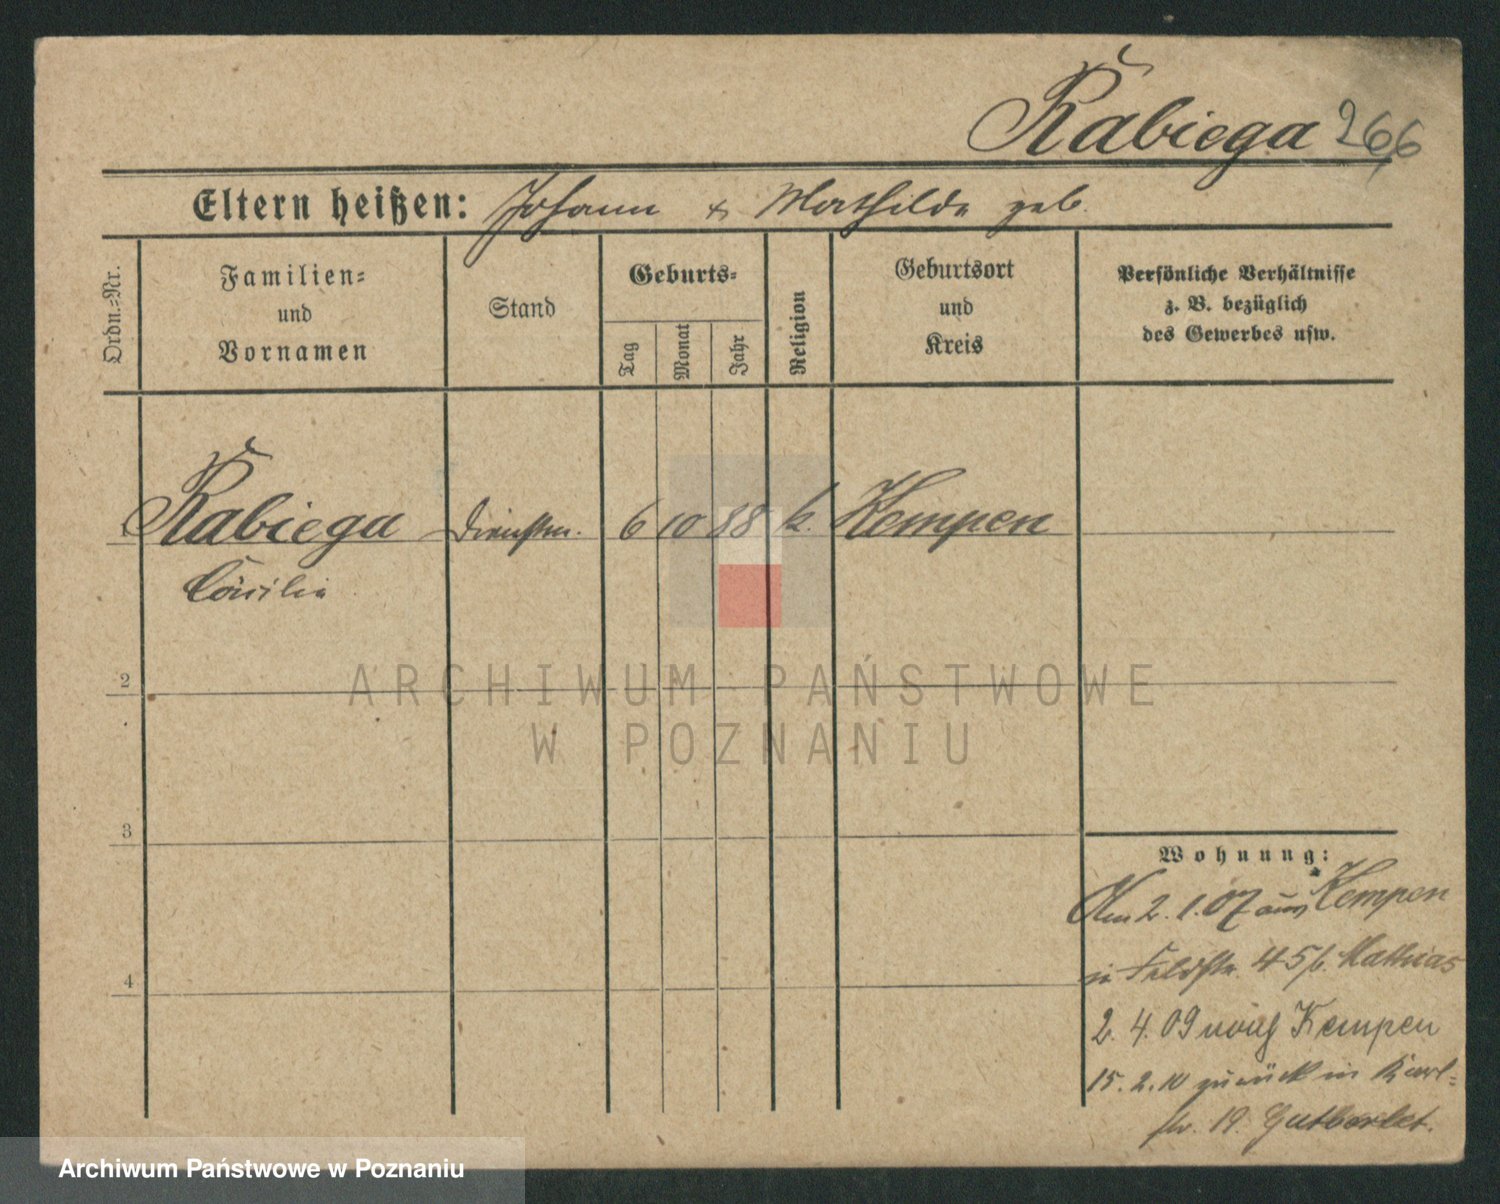 Rabiega 266
Eltern heißen: Johann & Mathilde geb.
Ordn.-Nr.
Familien-
und
Vornamen
Stand
Geburts-
Tag
Monat
Jahr
Religion
Geburtsort
und
Kreis
Persönliche Verhältnisse
z. B. bezüglich
des Gewerbes usw.
1 Rabiega Dienstm. 6 10 88 k. Kempen
Cäcilia
2
3
4
Wohnung:
Am 2. 1. 07 aus Kempen
in Feldstr. 45 b. Mathias
2. 4. 09 nach Kempen
15. 2. 10 zurück in Karl-
str. 19. Gutbarlet.
ARCHIWUM PAŃSTWOWE
W POZNANIU
Archiwum Państwowe w Poznaniu